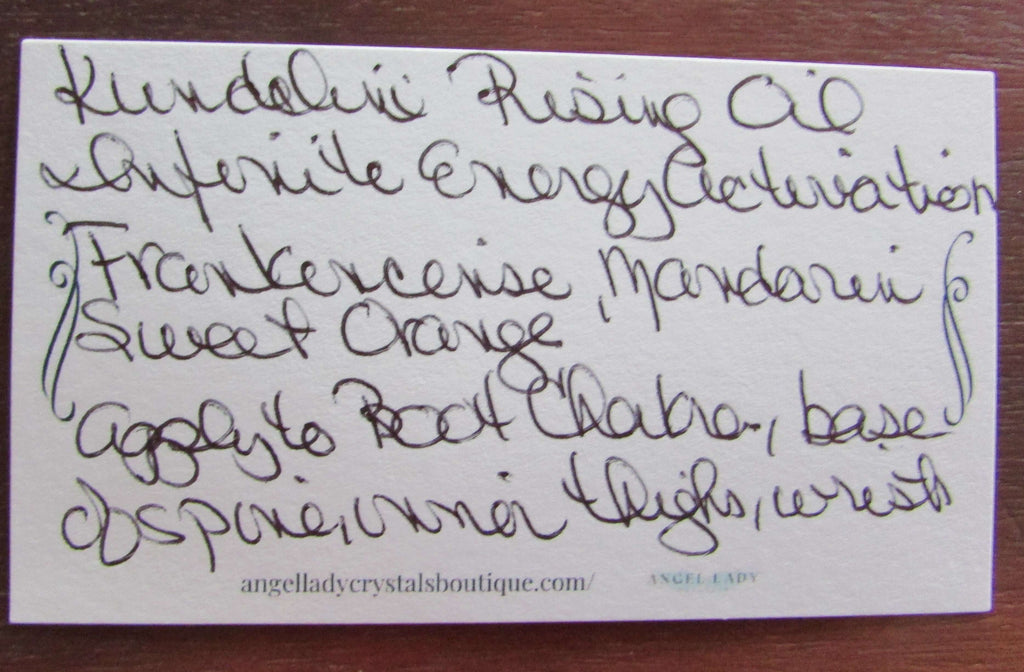 Kundalini Rising Oil
Infinite Energy Activation
Frankencense, Mandarin
Sweet Orange
apply to Root Chakra, base
of spine, inner thighs, wrists
angelladycrystalsboutique.com/ ANGEL LADY